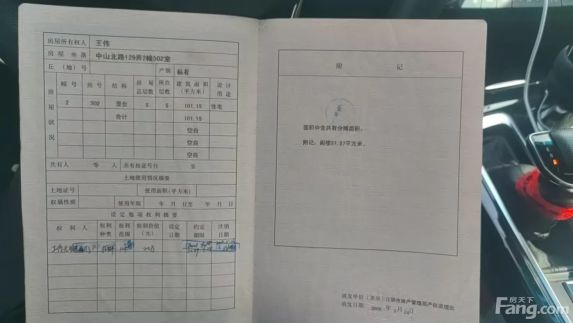 房屋所有权人 王伟
房屋坐落 中山北路129弄2幢502室
丘（地）号 产别 私有
房屋状况 幢号 房号 结构 房屋总层数 所在层数 建筑面积（平方米） 设计用途
2 502 混合 5 5 101.15 住宅
合计 101.15
空白
空白
空白
共有人 等 人 共有权证号自 至
土地使用情况摘要
土地证号 使用面积（平方米）
权属性质 使用年限 年 月 日至 年 月 日
设定他项权利摘要
权利人 权利种类 权利范围 权利价值（元） 设定日期 约定期限 注销日期
附 记
面积中含共有分摊面积。
附记：阁楼51.57平方米。
填发单位
房天下
Fang.com